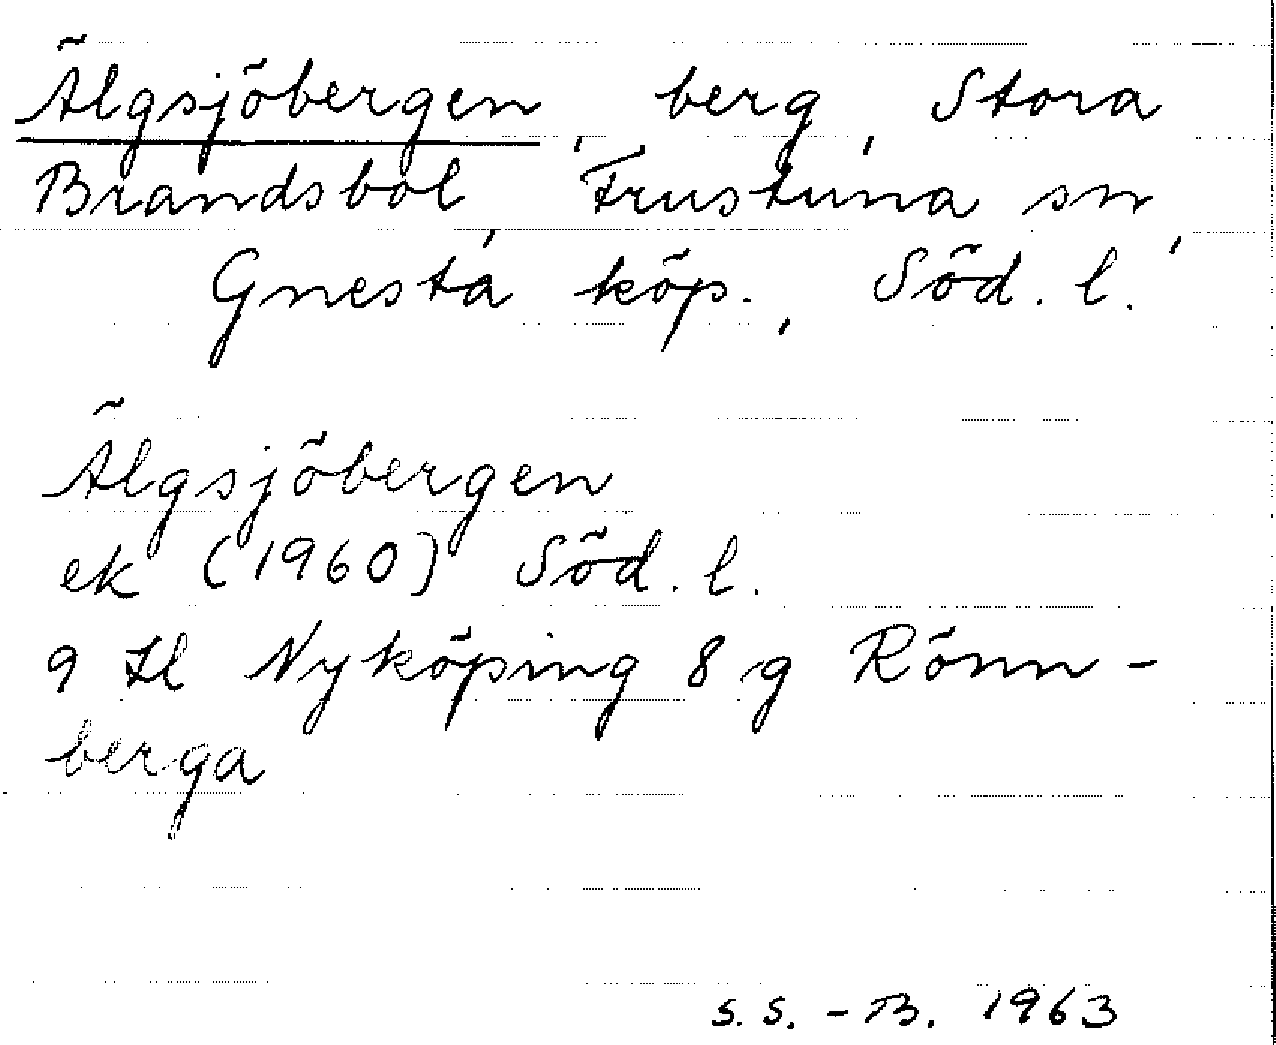 Älgsjöbergen, berg, Stora
Brandsbol, Frustuna sn,
Gnesta köp., Söd. l.
Älgsjöbergen
ek (1960) Söd. l.
9 H Nyköping 8 g Rönn-
berga
S. S. - B. 1963